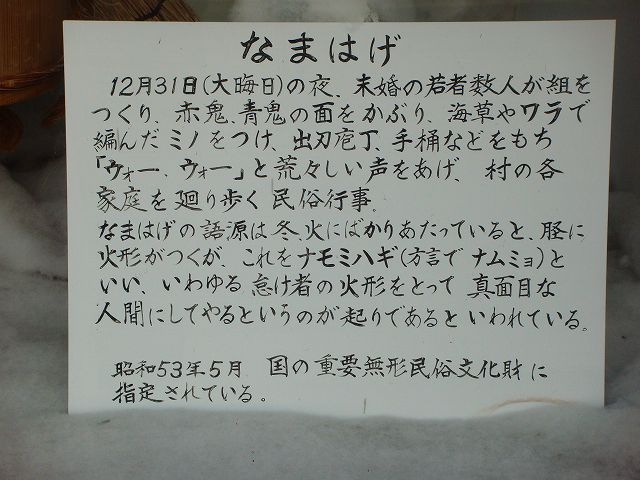 なまはげ
12月31日(大晦日)の夜、未婚の若者数人が組を
つくり、赤鬼、青鬼の面をかぶり、海草やワラで
編んだミノをつけ、出刃庖丁、手桶などをもち
「ウォー、ウォー」と荒々しい声をあげ、村の各
家庭を廻り歩く民俗行事。
なまはげの語源は冬、火にばかりあたっていると、脛に
火形がつくが、これをナモミハギ(方言でナムミョ)と
いい、いわゆる怠け者の火形をとって真面目な
人間にしてやるというのが起りであるといわれている。
昭和53年5月 国の重要無形民俗文化財に
指定されている。